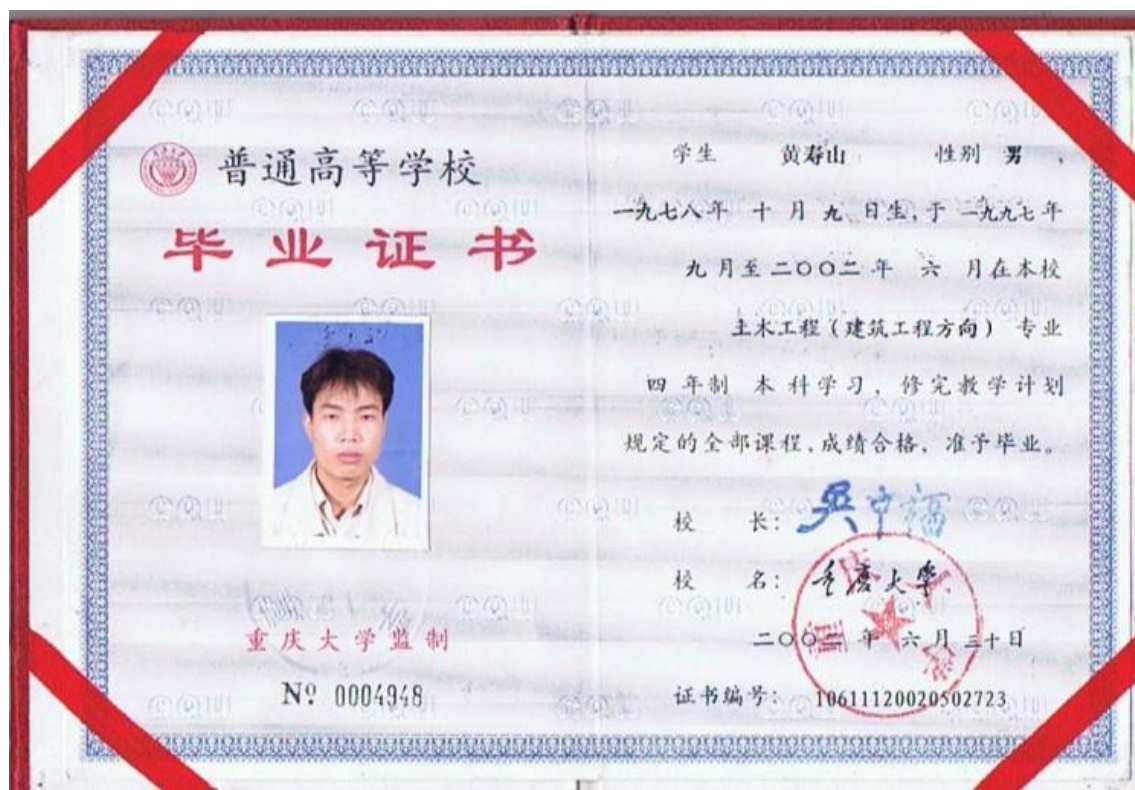 普通高等学校
毕业证书
重庆大学监制
Nº 0004948
学生 黄寿山 性别 男，
一九七八年 十 月 九 日生，于 一九九七年
九 月至二〇〇二年 六 月在本校
土木工程（建筑工程方向） 专业
四 年制 本 科学习，修完教学计划
规定的全部课程，成绩合格，准予毕业。
校 长：吴中福
校 名：重庆大学
二〇〇二 年 六 月 三十日
证书编号： 10611120020502723